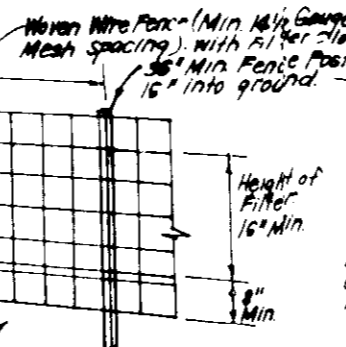 Woven Wire Fence (Min. 14½ Gauge
Mesh spacing) with Filter
36" Min. Fence Post
16" into ground.
Height of
Filter
16" Min.
8"
Min.